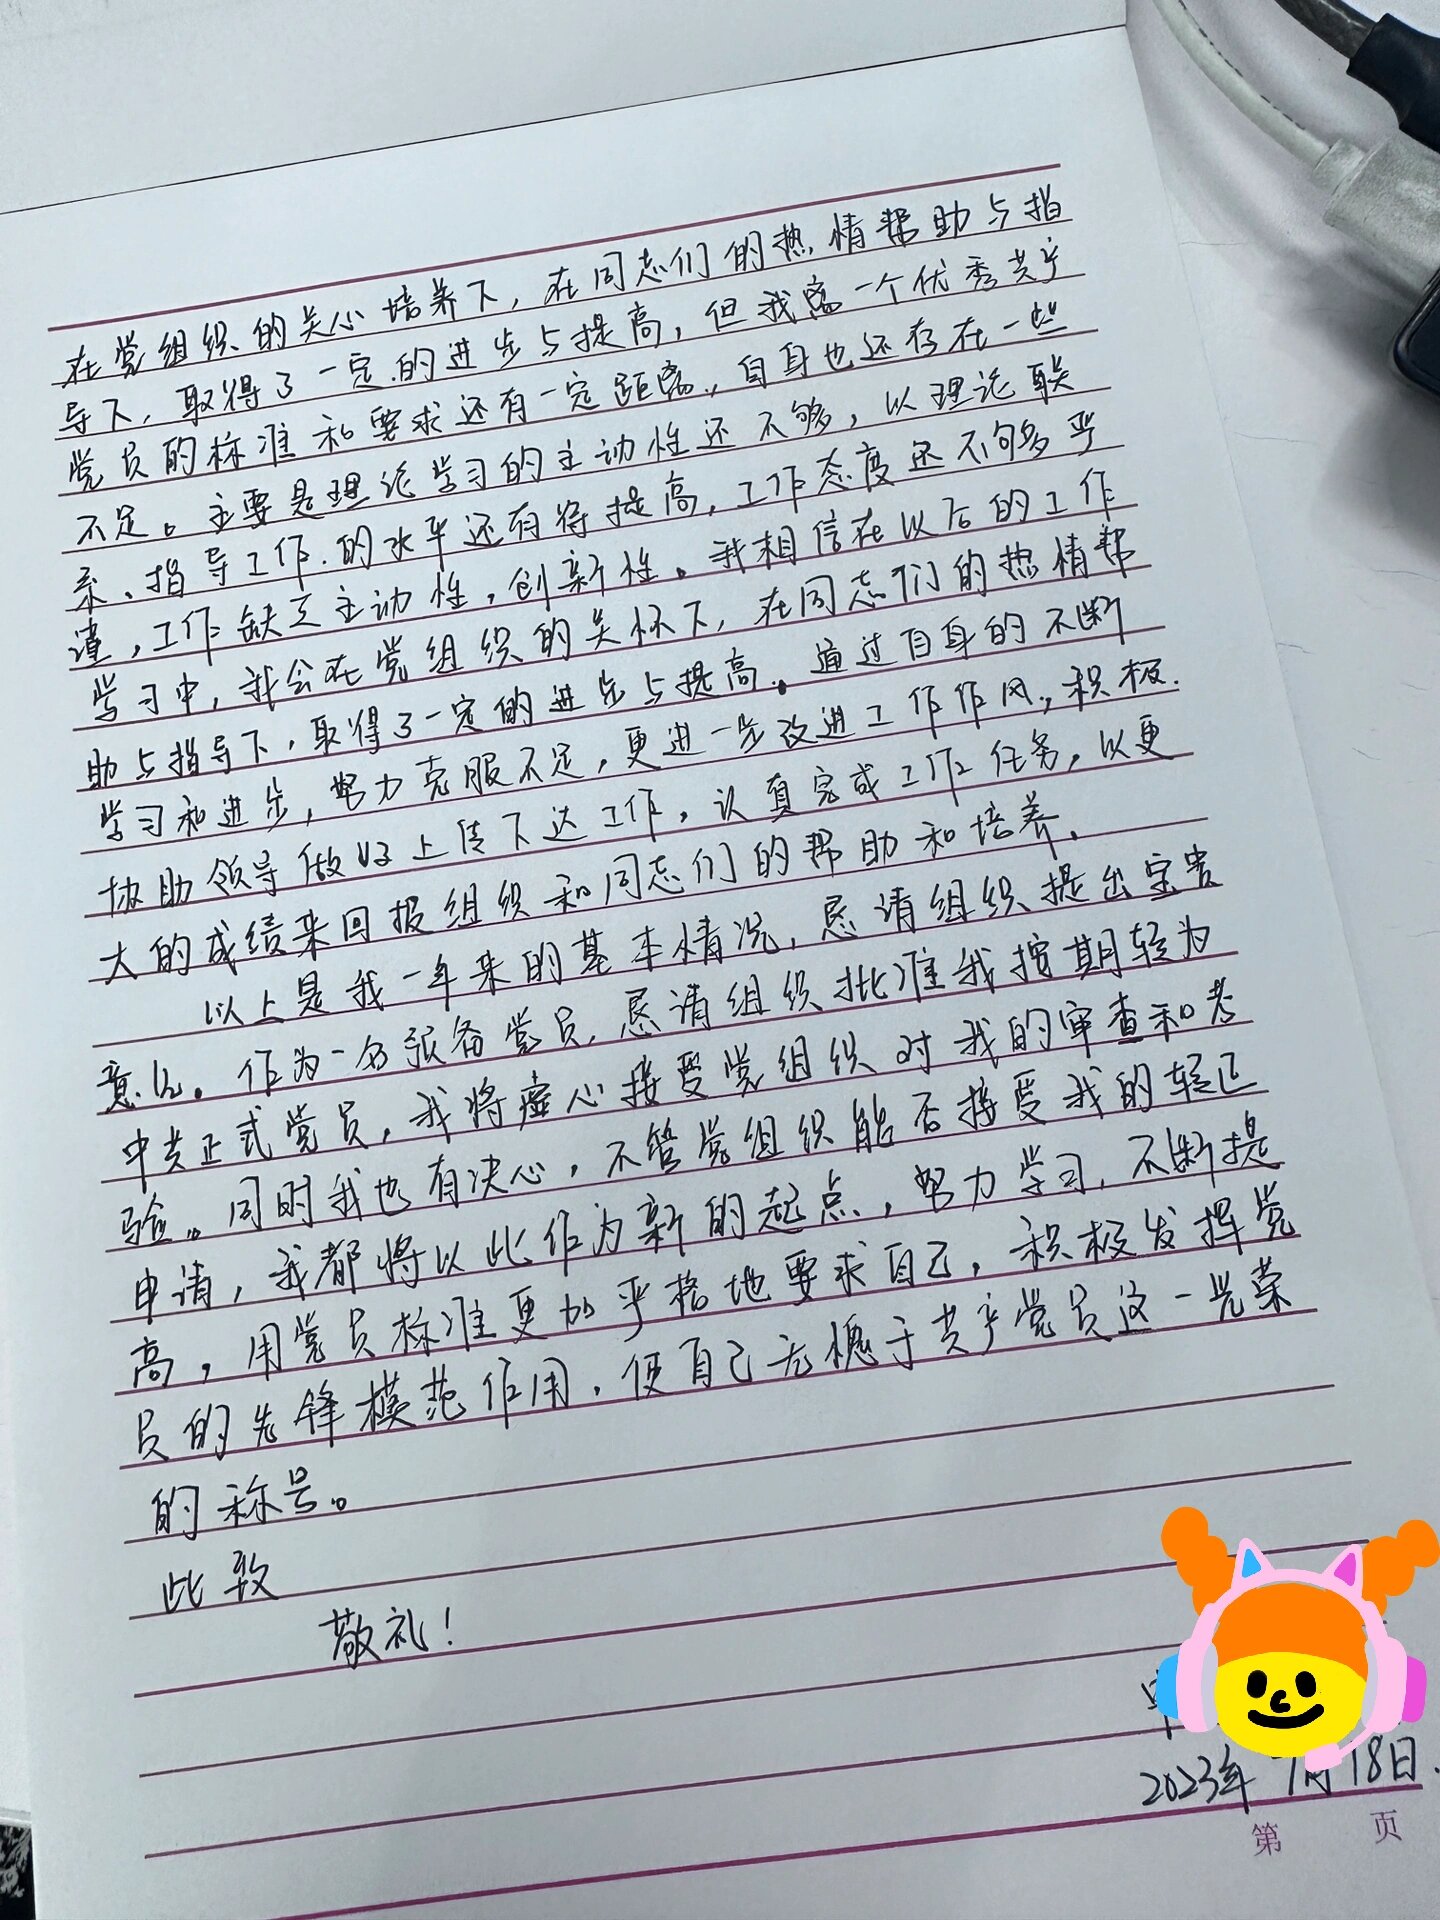 在党组织的关心培养下，在同志们的热情帮助与指
导下，取得了一定的进步与提高，但我离一个优秀共产
党员的标准和要求还有一定距离，自身也还存在一些
不足。主要是理论学习的主动性还不够，以理论联
系、指导工作的水平还有待提高，工作态度还不够严
谨，工作缺乏主动性，创新性。我相信在以后的工作
学习中，我会在党组织的关怀下，在同志们的热情帮
助与指导下，取得了一定的进步与提高。通过自身的不断
学习和进步，努力克服不足，更进一步改进工作作风，积极
协助领导做好上传下达工作，认真完成工作任务，以更
大的成绩来回报组织和同志们的帮助和培养。
以上是我一年来的基本情况，恳请组织提出宝贵
意见。作为一名预备党员，恳请组织批准我按期转为
中共正式党员，我将虚心接受党组织对我的审查和考
验。同时我也有决心，不管党组织能否接受我的转正
申请，我都将以此作为新的起点，努力学习，不断提
高，用党员标准更加严格地要求自己，积极发挥党
员的先锋模范作用，使自己无愧于共产党员这一光荣
的称号。
此致
敬礼！
2023年7月18日.
第 页